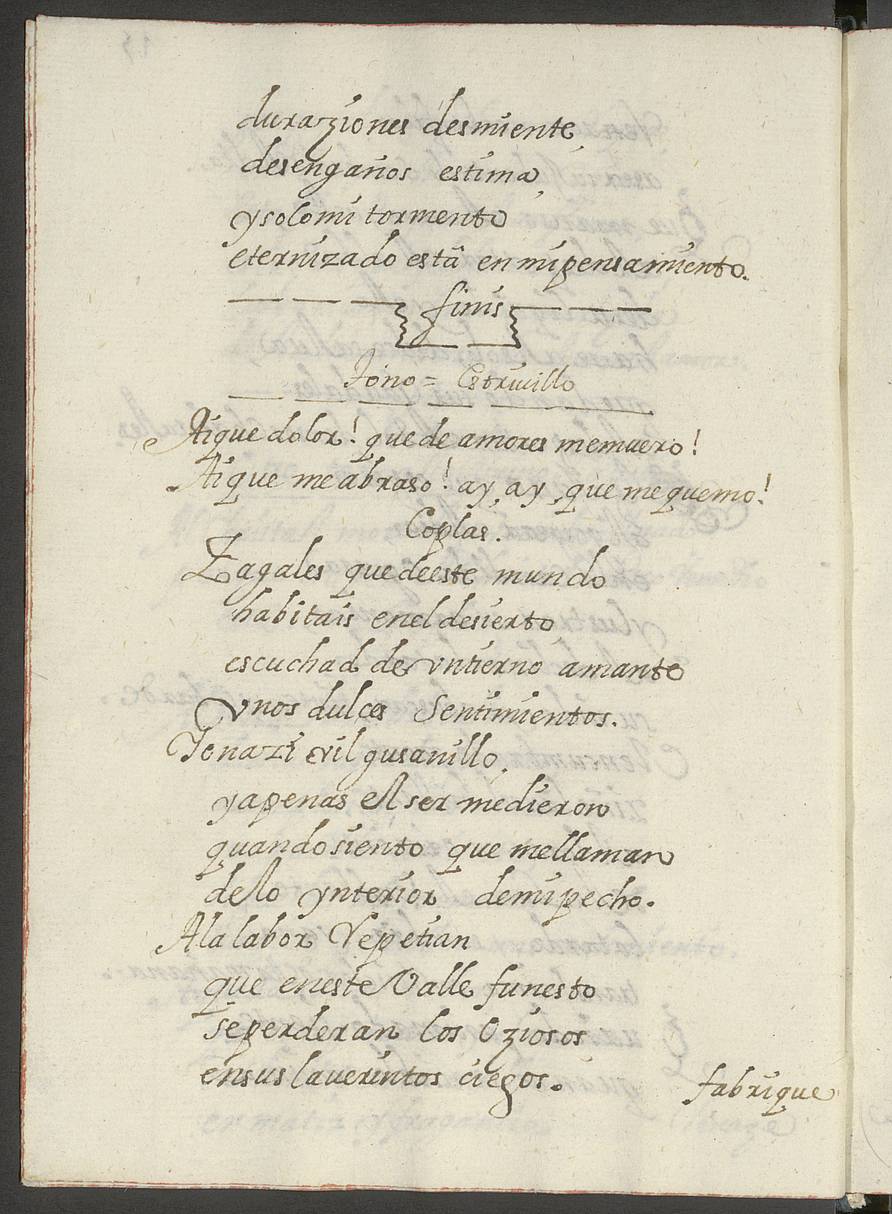 duraziones desmiente
desengaños estima
y solo mi tormento
eternizado está en mi pensamiento.
finis
Tono = Estriuillo
Ai que dolor! que de amores me muero!
Ai que me abraso! ay, ay, que me quemo!
Coplas.
Zagales que deeste mundo
habitais enel desierto
escuchad de vn tierno amante
vnos dulces Sentimientos.
Yo nazi vil gusanillo
y apenas el ser me dieron
quando siento que me llaman
de lo ynterior de mi pecho.
A la labor Repetian
que eneste Valle funesto
se perderan los Oziosos
ensus lauerintos ciegos.
fabrique